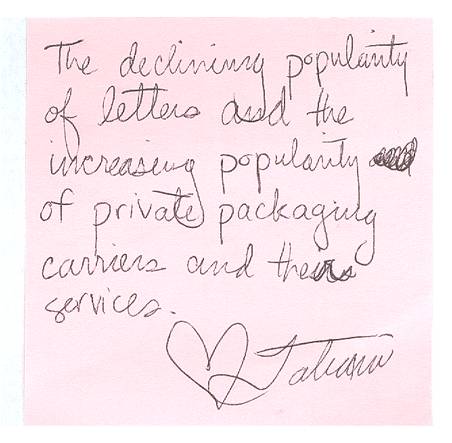 The declining popularity
of letters and the
increasing popularity
of private packaging
carriers and their
services.
Tatiana